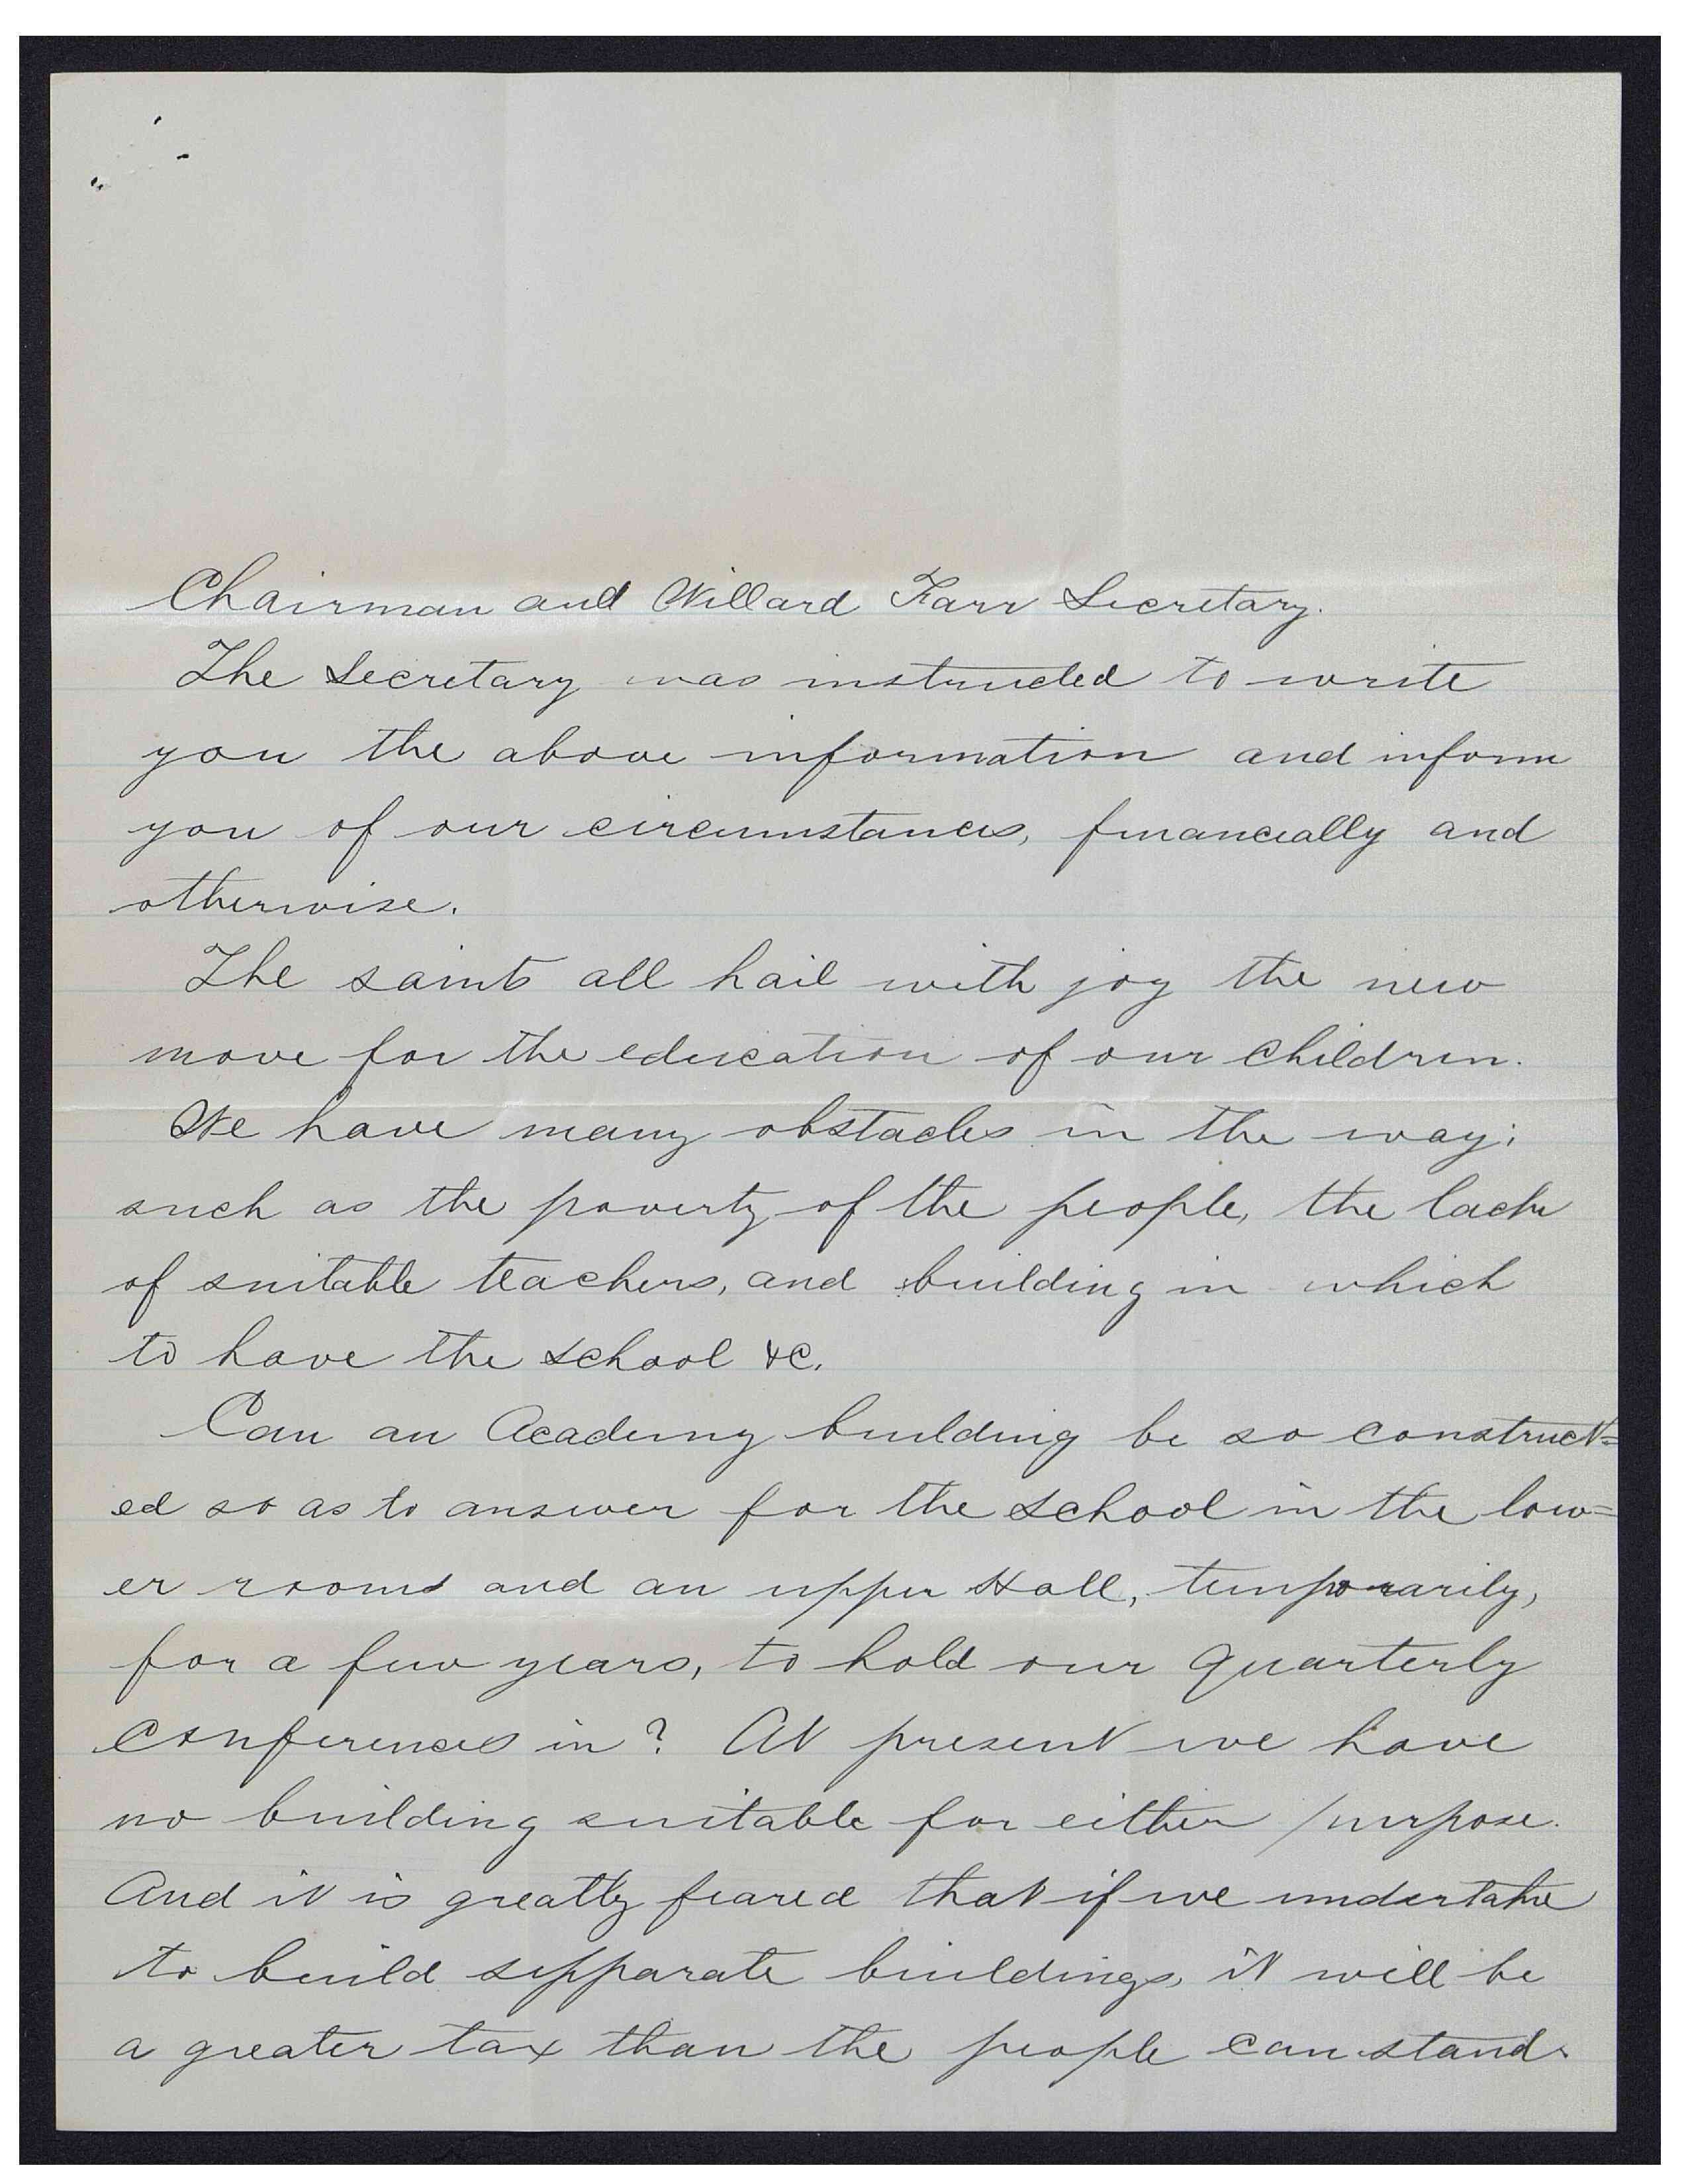 Chairman and Willard Farr Secretary.
The Secretary was instructed to write
you the above information and inform
you of our circumstances, financially and
otherwise.
The saints all hail with joy the new
move for the education of our children.
We have many obstacles in the way;
such as the poverty of the people, the lack
of suitable teachers, and building in which
to have the school &c.
Can an Academy building be so construct=
ed so as to answer for the school in the low=
er rooms and an upper Hall, temporarily,
for a few years, to hold our quarterly
conferences in? At present we have
no building suitable for either purpose.
And it is greatly feared that if we undertake
to build sepparate buildings, it will be
a greater tax than the people can stand.